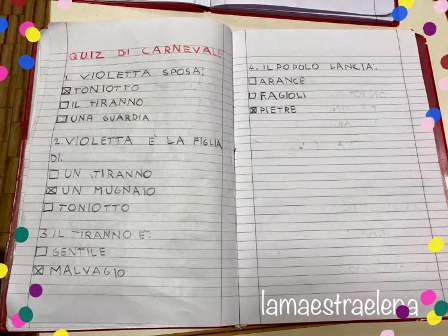 QUIZ DI CARNEVALE
1. VIOLETTA SPOSA:
TONIOTTO
IL TIRANNO
UNA GUARDIA
2. VIOLETTA È LA FIGLIA
DI:
UN TIRANNO
UN MUGNAIO
TONIOTTO
3 IL TIRANNO E':
GENTILE
MALVAGIO
4. IL POPOLO LANCIA:
ARANCE
FAGIOLI
PIETRE
lamaestraelena